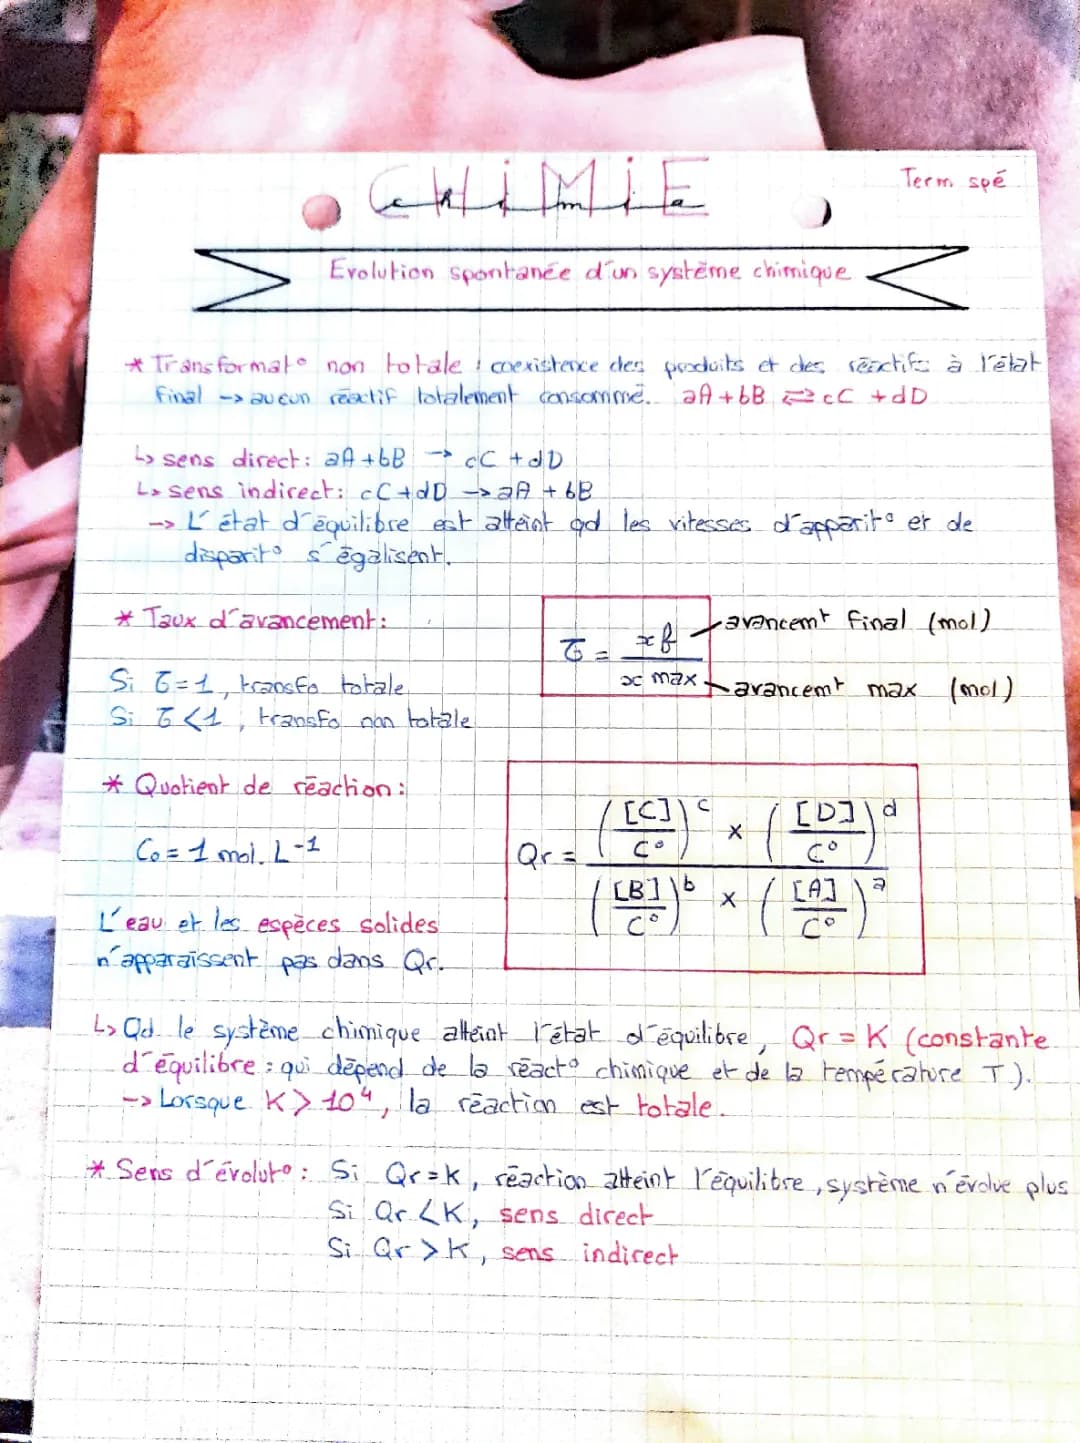 CHIMIE
Term spé
Evolution spontanée d'un système chimique
* Transformat° non totale : coexistence des produits et des réactifs à l'état
final -> aucun réactif totalement consommé. aA + bB ⇌ cC + dD
↳ sens direct : aA + bB → cC + dD
↳ sens indirect : cC + dD → aA + bB
-> L'état d'équilibre est atteint qd les vitesses d'apparit° et de
disparit° s'égalisent.
* Taux d'avancement :
τ = xf / x max
avancemt final (mol)
avancemt max (mol)
Si τ = 1, transfo totale
Si τ < 1, transfo non totale
* Quotient de réaction :
C₀ = 1 mol. L⁻¹
Qr = (([C]/C°)^c × ([D]/C°)^d) / (([B]/C°)^b × ([A]/C°)^a)
L'eau et les espèces solides
n'apparaissent pas dans Qr.
↳ Qd le système chimique atteint l'état d'équilibre, Qr = K (constante
d'équilibre : qui dépend de la réact° chimique et de la température T).
-> Lorsque K > 10⁴, la réaction est totale.
* Sens d'évolut° : Si Qr = K, réaction atteint l'équilibre, système n'évolue plus
Si Qr < K, sens direct
Si Qr > K, sens indirect